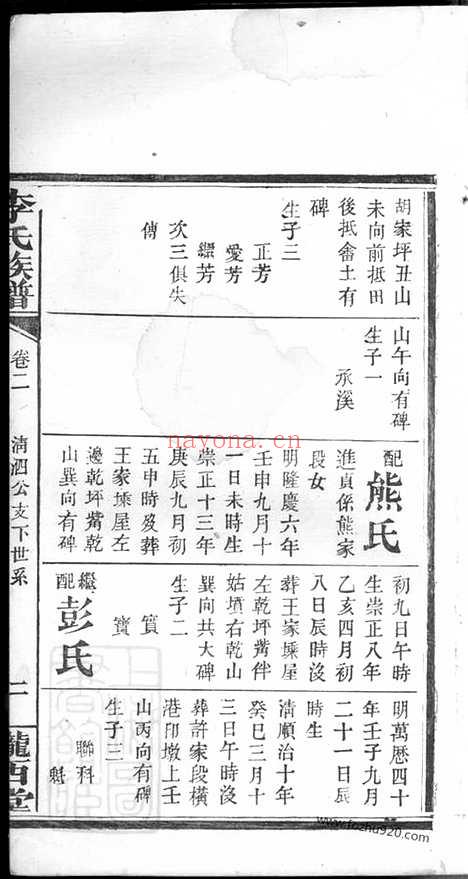 胡家坪丑山
未向前抵田
後抵畬土有
碑
生子三
正芳
愛芳
繼芳
次三俱失
傳
山午向有碑
生子一
承溪
配熊氏
進貞係熊家
段女
明隆慶六年
壬申九月十
一日未時生
崇正十三年
庚辰九月初
五申時歿葬
王家塖屋左
邊乾坪觜乾
山巽向有碑
初九日午時
生崇正八年
乙亥四月初
八日辰時沒
葬王家塖屋
左乾坪觜伴
姑墳右乾山
巽向共大碑
生子二
賓
寳
繼配彭氏
明萬厯四十
年壬子九月
二十一日辰
時生
清順治十年
癸巳三月十
三日午時沒
葬許家段橫
港印墩上壬
山丙向有碑
生子三
聯科
魁
李氏族譜
卷二
清泗公支下世系
隴西堂
nayona.cn
www.fozhu920.com